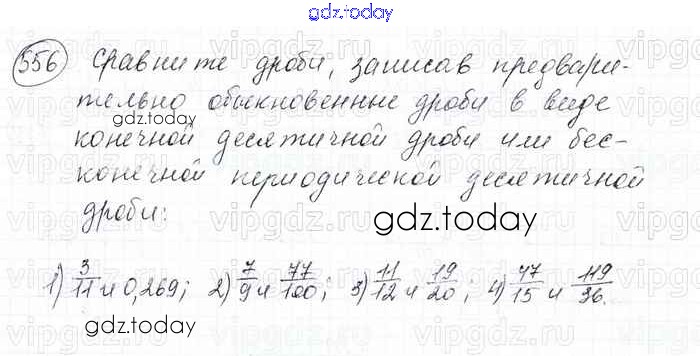 gdz.today
556 Сравните дроби, записав предвари-
тельно обыкновенные дроби в виде
gdz.today
конечной десятичной дроби или бес-
конечной периодической десятичной
дроби:
gdz.today
1) 3/11 и 0,269; 2) 7/9 и 77/100; 3) 11/12 и 19/20; 4) 47/15 и 119/36.
gdz.today